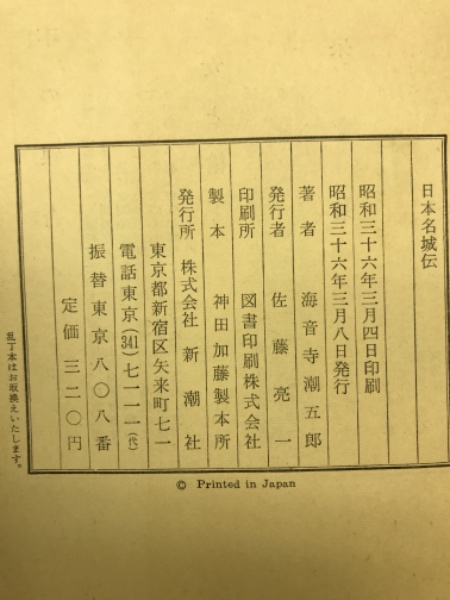 日本名城伝
昭和三十六年三月四日印刷
昭和三十六年三月八日発行
著者 海音寺潮五郎
発行者 佐藤亮一
印刷所 図書印刷株式会社
製本 神田加藤製本所
発行所 株式会社新潮社
東京都新宿区矢来町七一
電話東京(341)七一一一(代)
振替東京八〇八番
定価 三二〇円
乱丁本はお取換えいたします。
© Printed in Japan